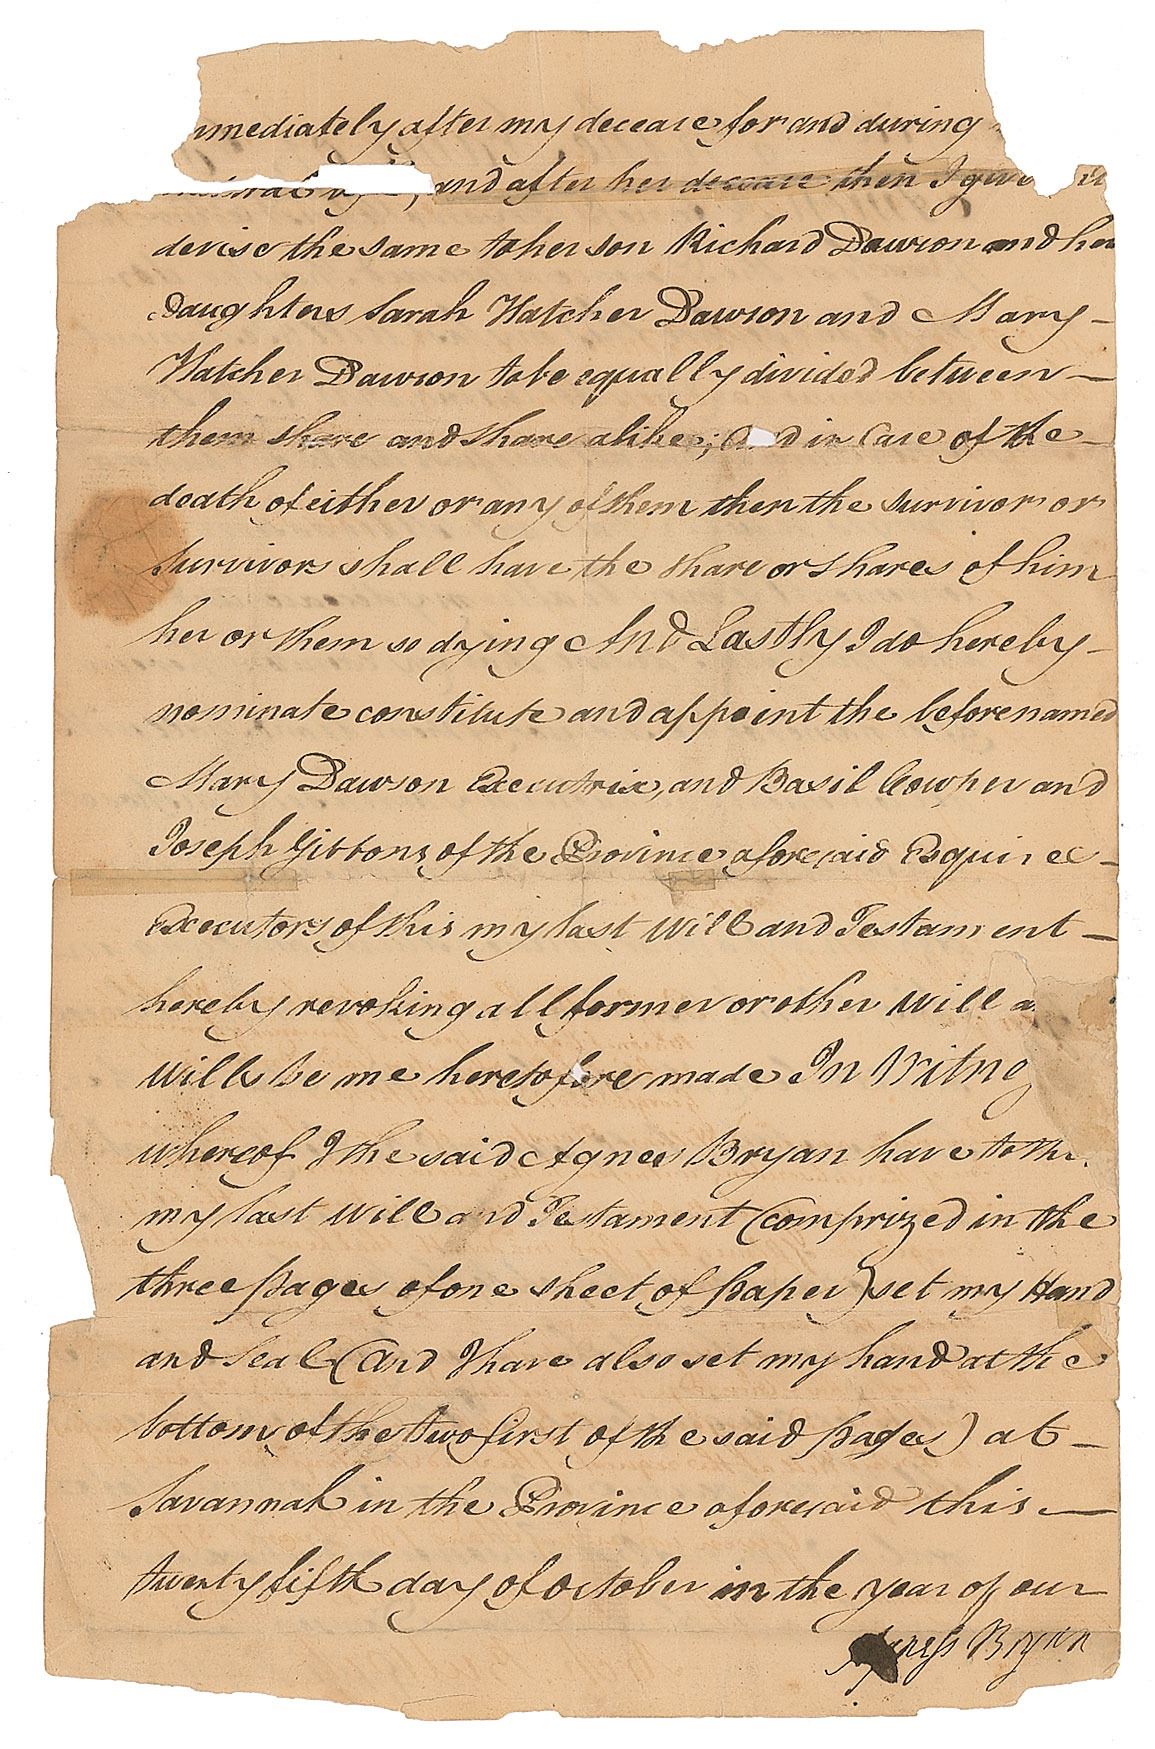 mmediately after my decease for and during
and after her decease then I give
devise the same to her son Richard Dawson and her
Daughters Sarah Hatcher Dawson and Mary -
Hatcher Dawson to be equally divided between -
them share and share alike; And in Case of the -
death of either or any of them then the survivor or
Survivors shall have the share or shares of him
her or them so dying And Lastly I do hereby -
nominate constitute and appoint the beforenamed
Mary Dawson Executrix, and Basil Cowper and
Joseph Gibbons of the Province aforesaid Esquires -
Executors of this my last Will and Testament -
hereby revoking all former or other Will a
Wills be me heretofore made In Witne
whereof I the said Agnes Bryan have to thi
my last Will and Testament (comprized in the
three pages of one sheet of paper) set my Hand
and Seal (And I have also set my hand at the
bottom of the two first of the said pages) at -
Savannah in the Province aforesaid this -
twenty fifth day of October in the year of our
Agness Bryan